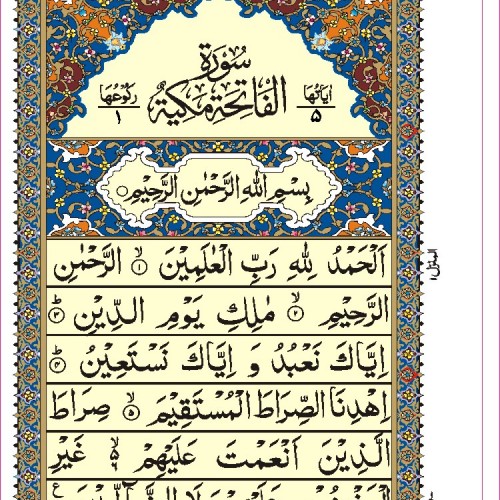 سُوْرَةُ
اٰيَاتُهَا ۵ الْفَاتِحَةِ مَكِّيَّةٌ رُكُوْعُهَا ۱
بِسْمِ اللّٰهِ الرَّحْمٰنِ الرَّحِيْمِ
اَلْحَمْدُ لِلّٰهِ رَبِّ الْعٰلَمِيْنَ ۙ‏۱ الرَّحْمٰنِ
الرَّحِيْمِ ۙ‏۲ مٰلِكِ يَوْمِ الدِّيْنِ ؕ‏۳
اِيَّاكَ نَعْبُدُ وَ اِيَّاكَ نَسْتَعِيْنُ ؕ‏۴
اِهْدِنَا الصِّرَاطَ الْمُسْتَقِيْمَ ۙ‏۵ صِرَاطَ
الَّذِيْنَ اَنْعَمْتَ عَلَيْهِمْ ۙ‏۶ غَيْرِ
المنزل ۱